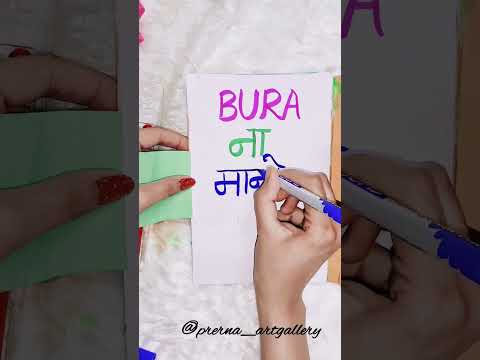 BURA
ना
मान
@prerna__artgallery